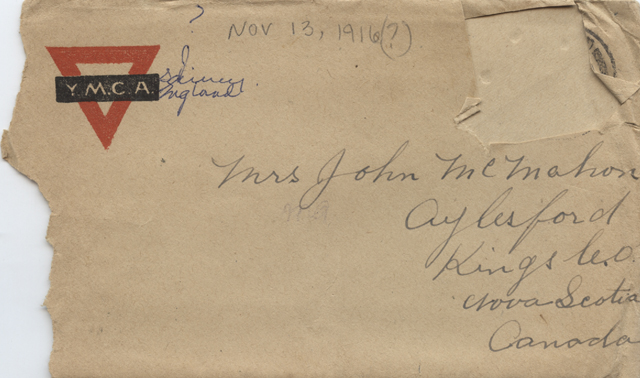 ?
Nov 13, 1916(?)
Y.M.C.A.
England
Mrs John McMahon
Aylesford
Kings Co.
Nova Scotia
Canada